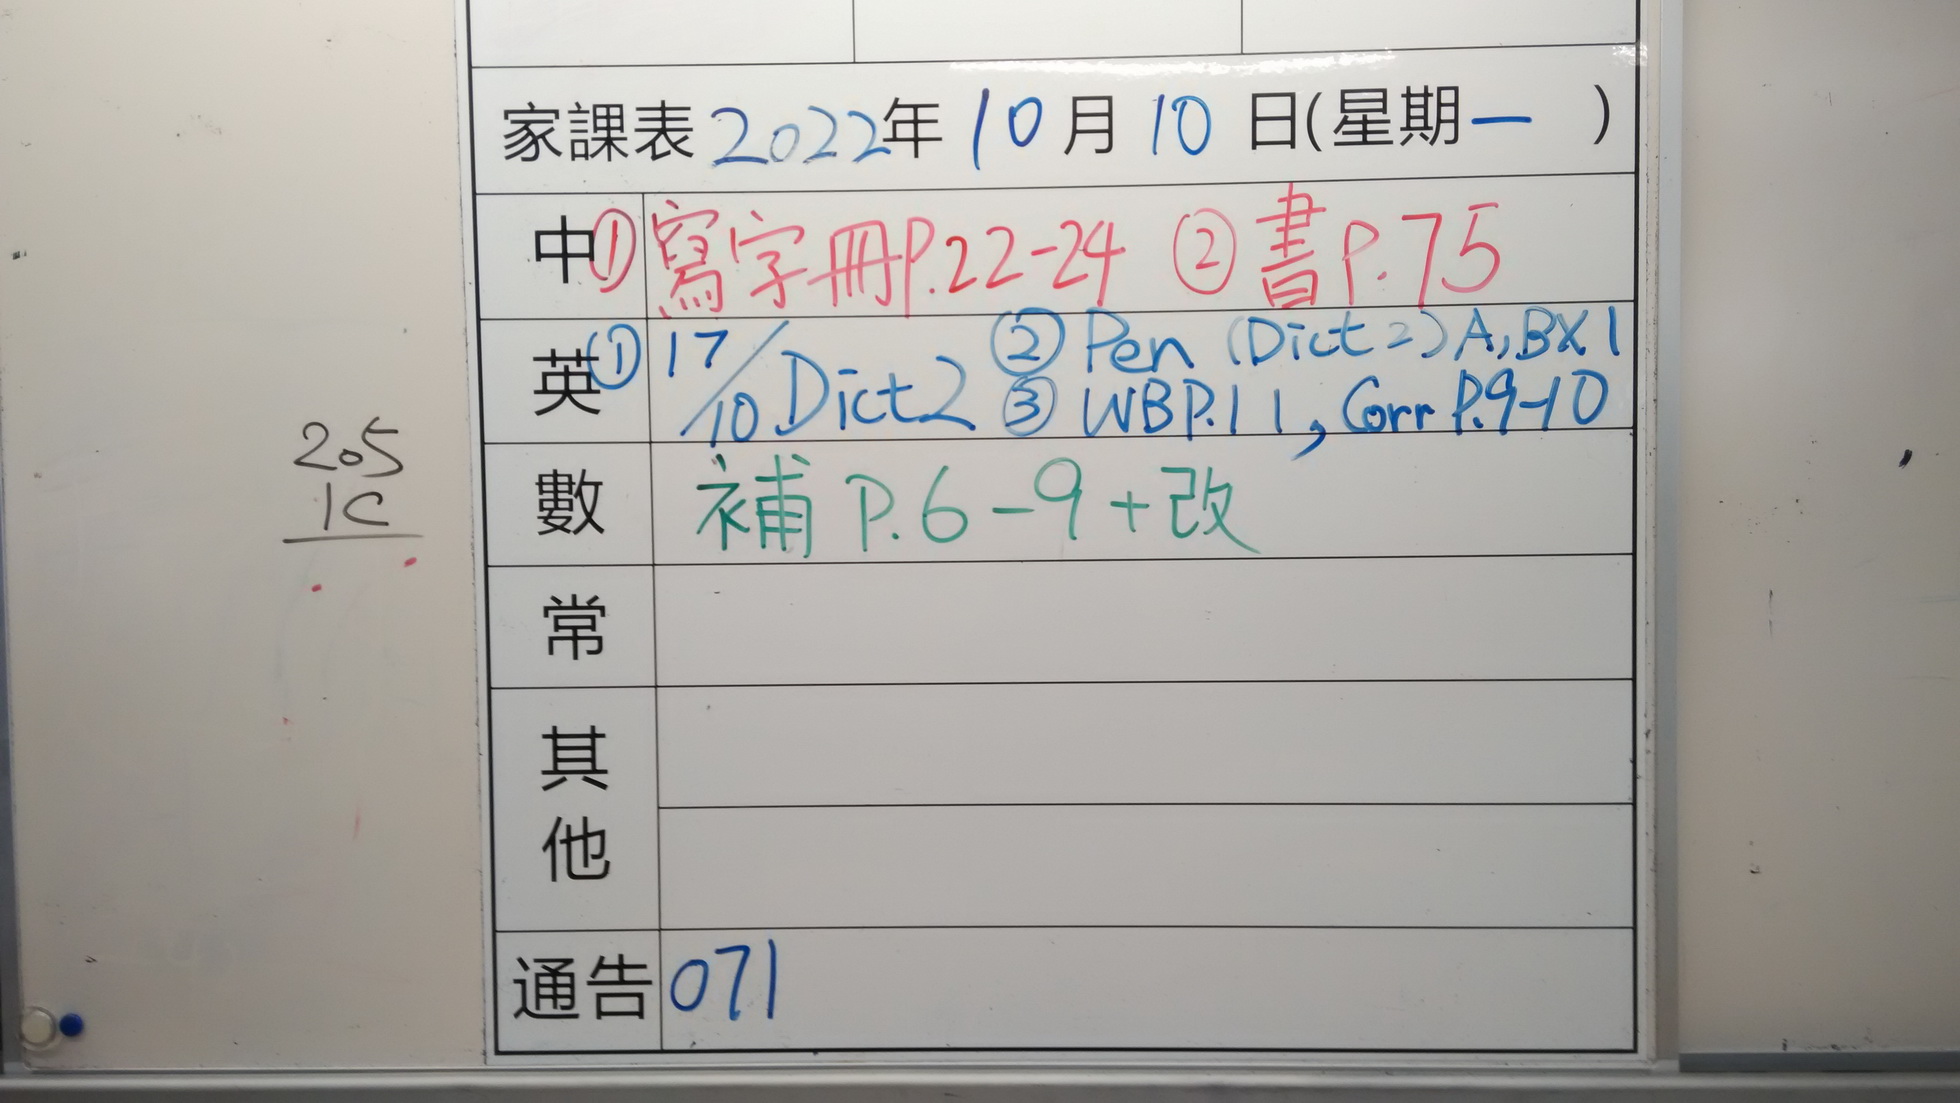 家課表 2022年 10月 10日(星期一 )
中 ① 寫字冊P.22-24 ② 書P.75
英 ① 17/10 Dict 2 ② Pen (Dict 2) A, BX1
③ WB P.11, Corr P.9-10
數 補 P.6-9+改
常
其他
通告 071
205
1C